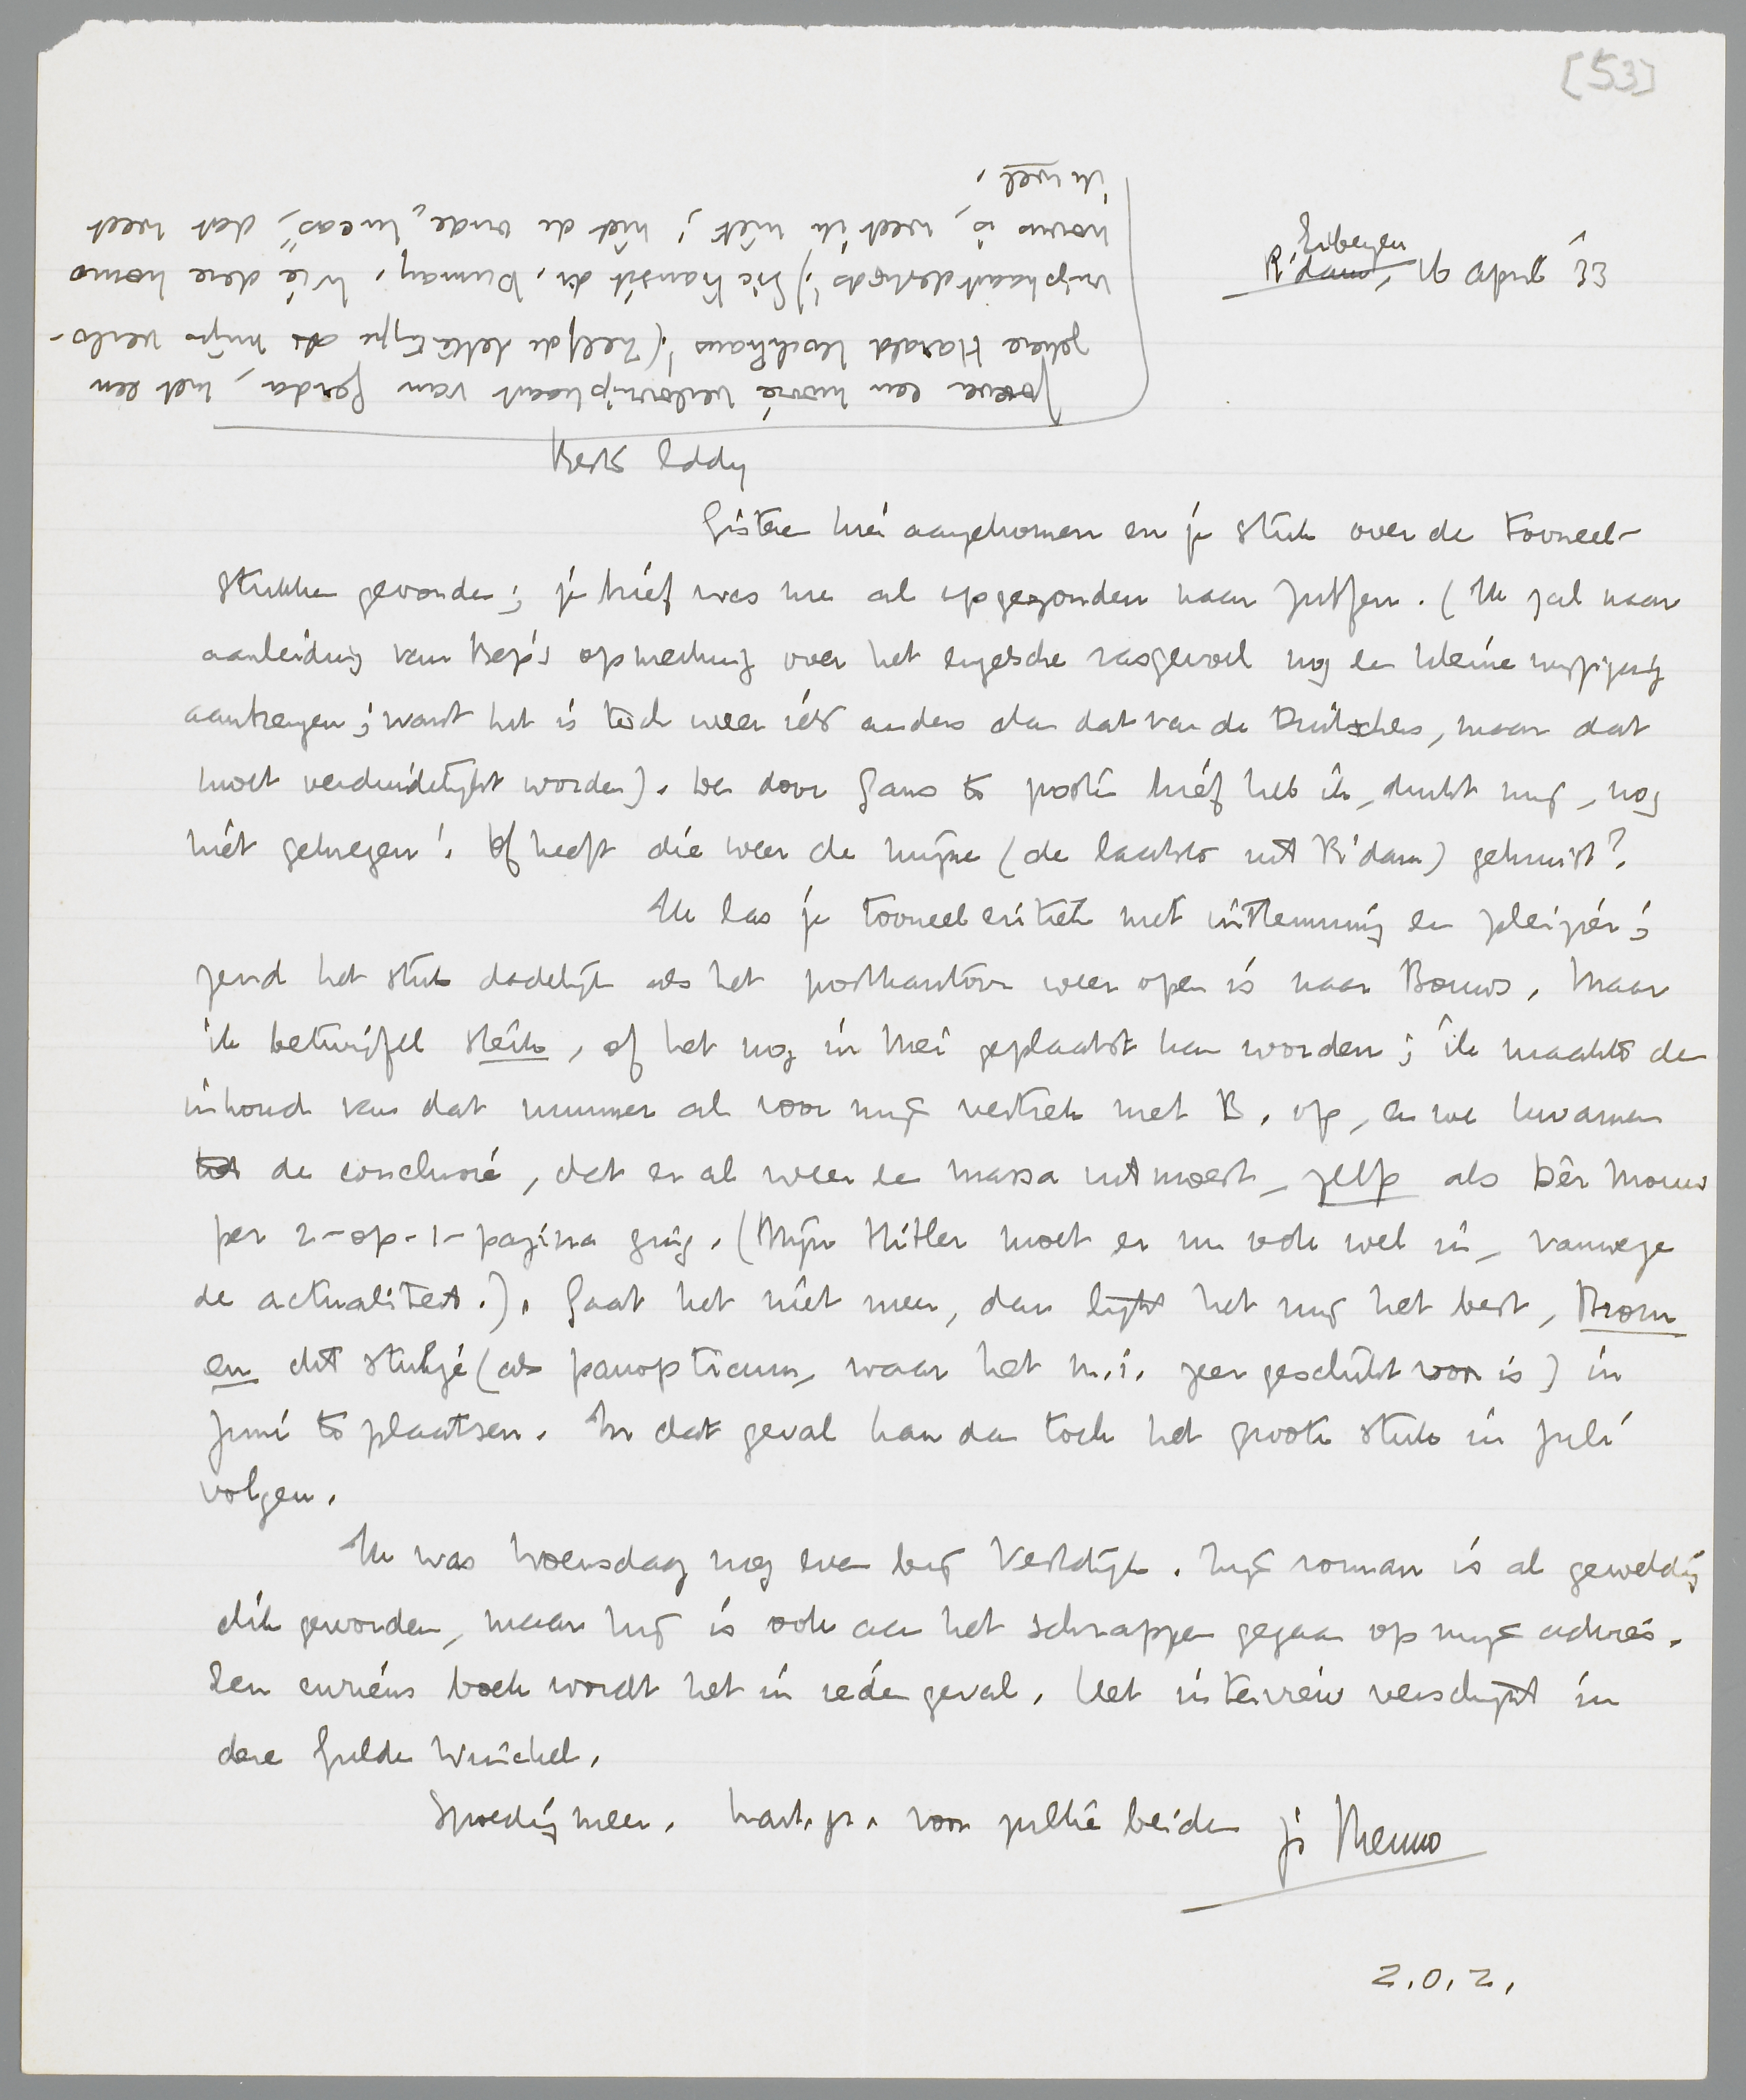 [53]
Eibergen
R'dam, 16 April '33
Beste Eddy
Gisteren hier aangekomen en je stuk over de tooneel-
stukken gevonden; je brief was me al opgezonden naar Zutfen. (Ik zal naar
aanleiding van Bep's opmerking over het engelsche rasgevoel nog een kleine wijziging
aanbrengen; want het is toch weer iets anders dan dat van de Duitschers, maar dat
moet verduidelijkt worden). Den door Gans te posten brief heb ik, dunkt mij, nog
niet gekregen! Of heeft die weer de mijne (de laatste uit R'dam) gekruist?
Ik las je tooneelcritiek met instemming en pleizier;
zend het stuk dadelijk als het postkantoor weer open is naar Bouws. Maar
ik betwijfel sterk, of het nog in Mei geplaatst kan worden; ik maakte den
inhoud van dat nummer al voor mijn vertrek met B. op, en we kwamen
tot de conclusie, dat er al weer een massa uit moest, zelfs als Dèr Mouw
per 2-op-1-pagina ging. (Mijn Hitler moet er nu ook wel in, vanwege
de actualiteit.). Gaat het niet meer, dan lijkt het mij het best, Brom
en dit stukje (als panopticum, waar het m.i. zeer geschikt voor is) in
Juni te plaatsen. In dat geval kan dan toch het groote stuk in Juli
volgen.
Ik was Woensdag nog even bij Vestdijk. Zijn roman is al geweldig
dik geworden, maar hij is ook aan het schrappen gegaan op mijn advies.
Een curieus boek wordt het in ieder geval. Het interview verschijnt in
den Gulden Winckel.
Spoedig meer. Hart. gr. voor jullie beiden je Menno
Z.O.Z.
Zoeven een mooie verlovingskaart van Gerda, met een
zekere Harald Kochhans (zelfde lettertype als mijn verlo-
vingskaart destijds!) Sic transit dr. Duman. Wie deze homo
novus is, weet ik niet; niet de oude „Lucas”, dat weet
ik wel.